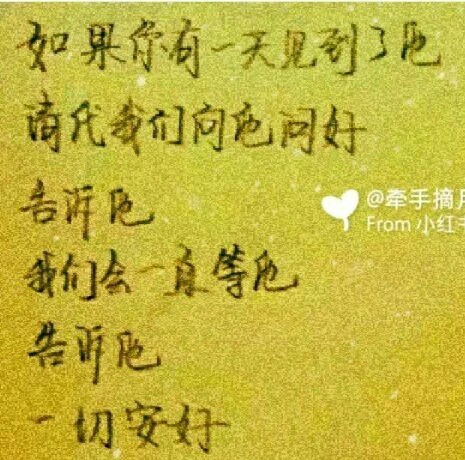 如果你有一天见到了他
请代我们向他问好
告诉他
我们会一直等他
告诉他
一切安好
@牵手摘月
From 小红书